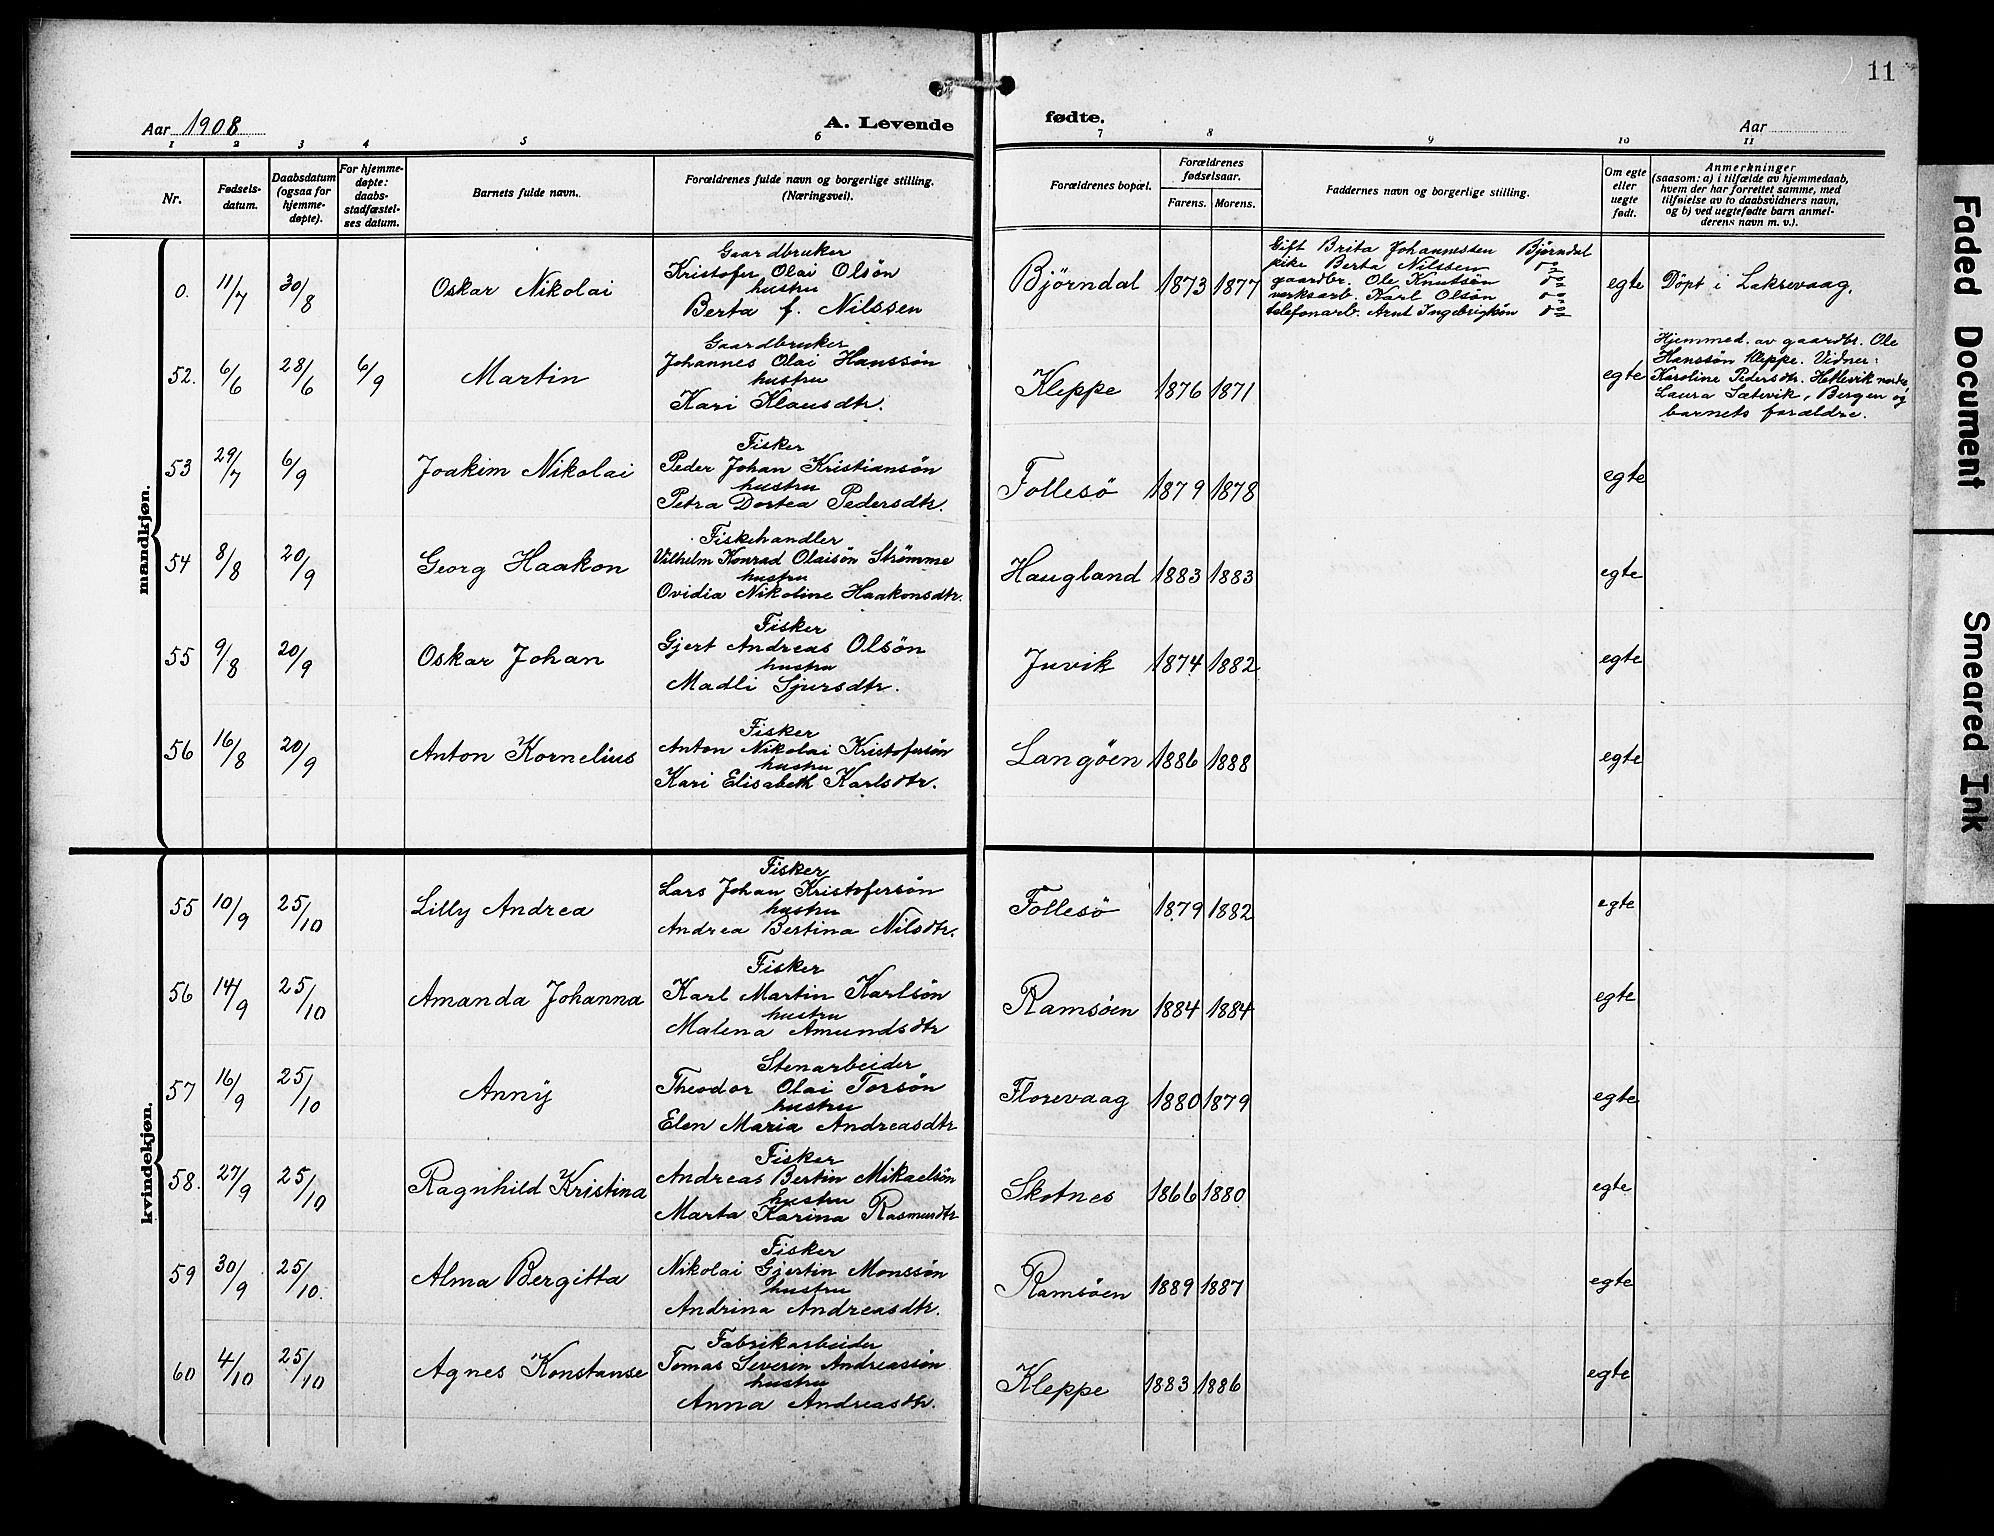 11
Aar 1908
A. Levende
fødte.
Aar
1 2 3 4 5 6 7 8 9 10 11
Nr.
Fødsels-
datum.
Daabsdatum
(ogsaa for
hjemme-
døpte).
For hjemme-
døpte:
daabs-
stadfæstel-
ses datum.
Barnets fulde navn.
Forældrenes fulde navn og borgerlige stilling.
(Næringsvei).
Forældrenes bopæl.
Forældrenes
fødselsaar.
Farens. Morens.
Faddernes navn og borgerlige stilling.
Om egte
eller
uegte
født.
Anmerkninger
(saasom: a) i tilfælde av hjemmedaab,
hvem der har forrettet samme, med
tilføielse av to daabsvidners navn,
og b) ved uegtefødte barn anmel-
derens navn m. v.).
mandkjøn.
0. 11/7 30/8 Oskar Nikolai
Gaardbruker
Kristofer Olai Olsön
hustru
Berta f. Nilssen
Björndal 1873 1877
Gift Brita Johannessen Björndal
pike Berta Nilssen do
gaardbr. Ole Knutsön do
verksarb. Karl Olsön do
telefonarb. Arnt Ingebrigtsön do
egte Döpt i Laksevaag.
52. 6/6 28/6 6/9 Martin
Gaardbruker
Johannes Olai Hanssön
hustru
Kari Klausdtr.
Kleppe 1876 1871 egte
Hjemmed. av gaardbr. Ole
Hanssön Kleppe. Vidner:
Karoline Pedersdtr. Hetlevik nordre,
Laura Sætevik, Bergen og
barnets forældre.
53 29/7 6/9 Joakim Nikolai
Fisker
Peder Johan Kristiansön
hustru
Petra Dortea Pedersdtr.
Follesö 1879 1878 egte
54 8/8 20/9 Georg Haakon
Fiskehandler
Vilhelm Konrad Olaisön Strömme
hustru
Ovidia Nikoline Haakonsdtr.
Haugland 1883 1883 egte
55 9/8 20/9 Oskar Johan
Fisker
Gjert Andreas Olsön
hustru
Madli Sjursdtr.
Juvik 1874 1882 egte
56 16/8 20/9 Anton Kornelius
Fisker
Anton Nikolai Kristofersön
hustru
Kari Elisabeth Karlsdtr.
Langöen 1886 1888 egte
kvindekjøn.
55 10/9 25/10 Lilly Andrea
Fisker
Lars Johan Kristofersön
hustru
Andrea Bertina Nilsdtr.
Follesö 1879 1882 egte
56 14/9 25/10 Amanda Johanna
Fisker
Karl Martin Karlsön
hustru
Malena Amundsdtr
Ramsöen 1884 1884 egte
57 16/9 25/10 Anny
Stenarbeider
Theodor Olai Torsön
hustru
Elen Maria Andreasdtr
Florevaag 1880 1879 egte
58. 27/9 25/10 Ragnhild Kristina
Fisker
Andreas Bertin Mikaelsön
hustru
Marta Karina Rasmusdtr
Skotnes 1866 1880 egte
59 30/9 25/10. Alma Bergitta
Fisker
Nikolai Gjertin Monssön
hustru
Andrina Andreasdtr.
Ramsöen 1889 1887 egte
60 4/10 25/10 Agnes Konstanse
Fabrikarbeider
Tomas Severin Andreassön
hustru
Anna Andreasdtr.
Kleppe 1883 1886 egte
Faded Document
Smeared Ink